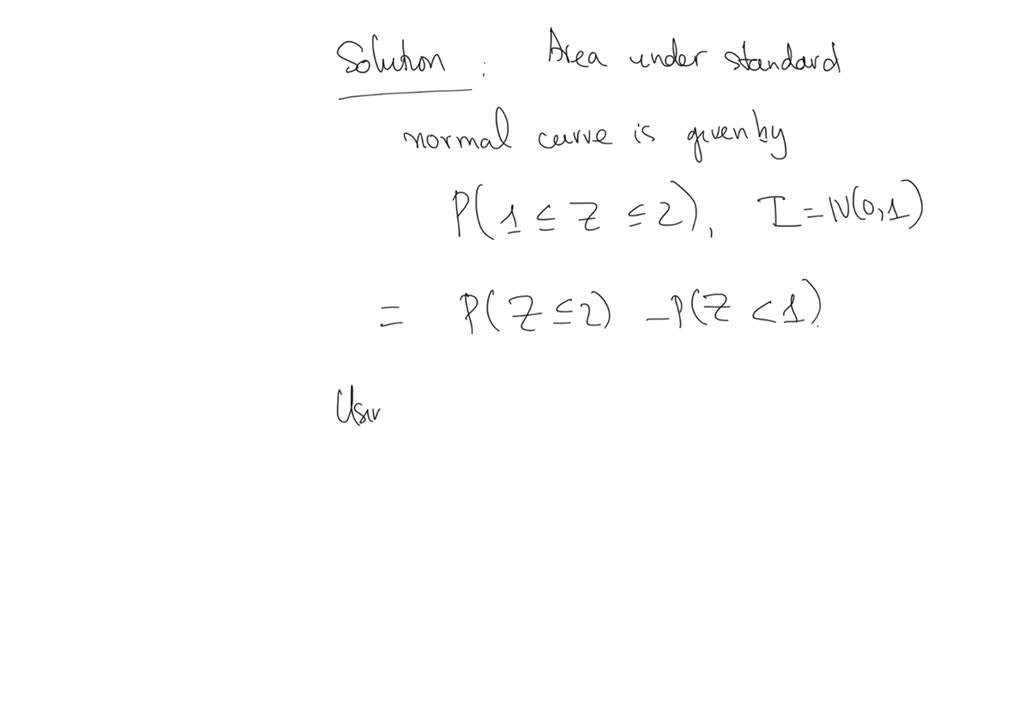 Solution : Area under standard
normal curve is given by
P(1 ≤ Z ≤ 2), I = N(0,1)
= P(Z ≤ 2) - P(Z < 1)
Usin